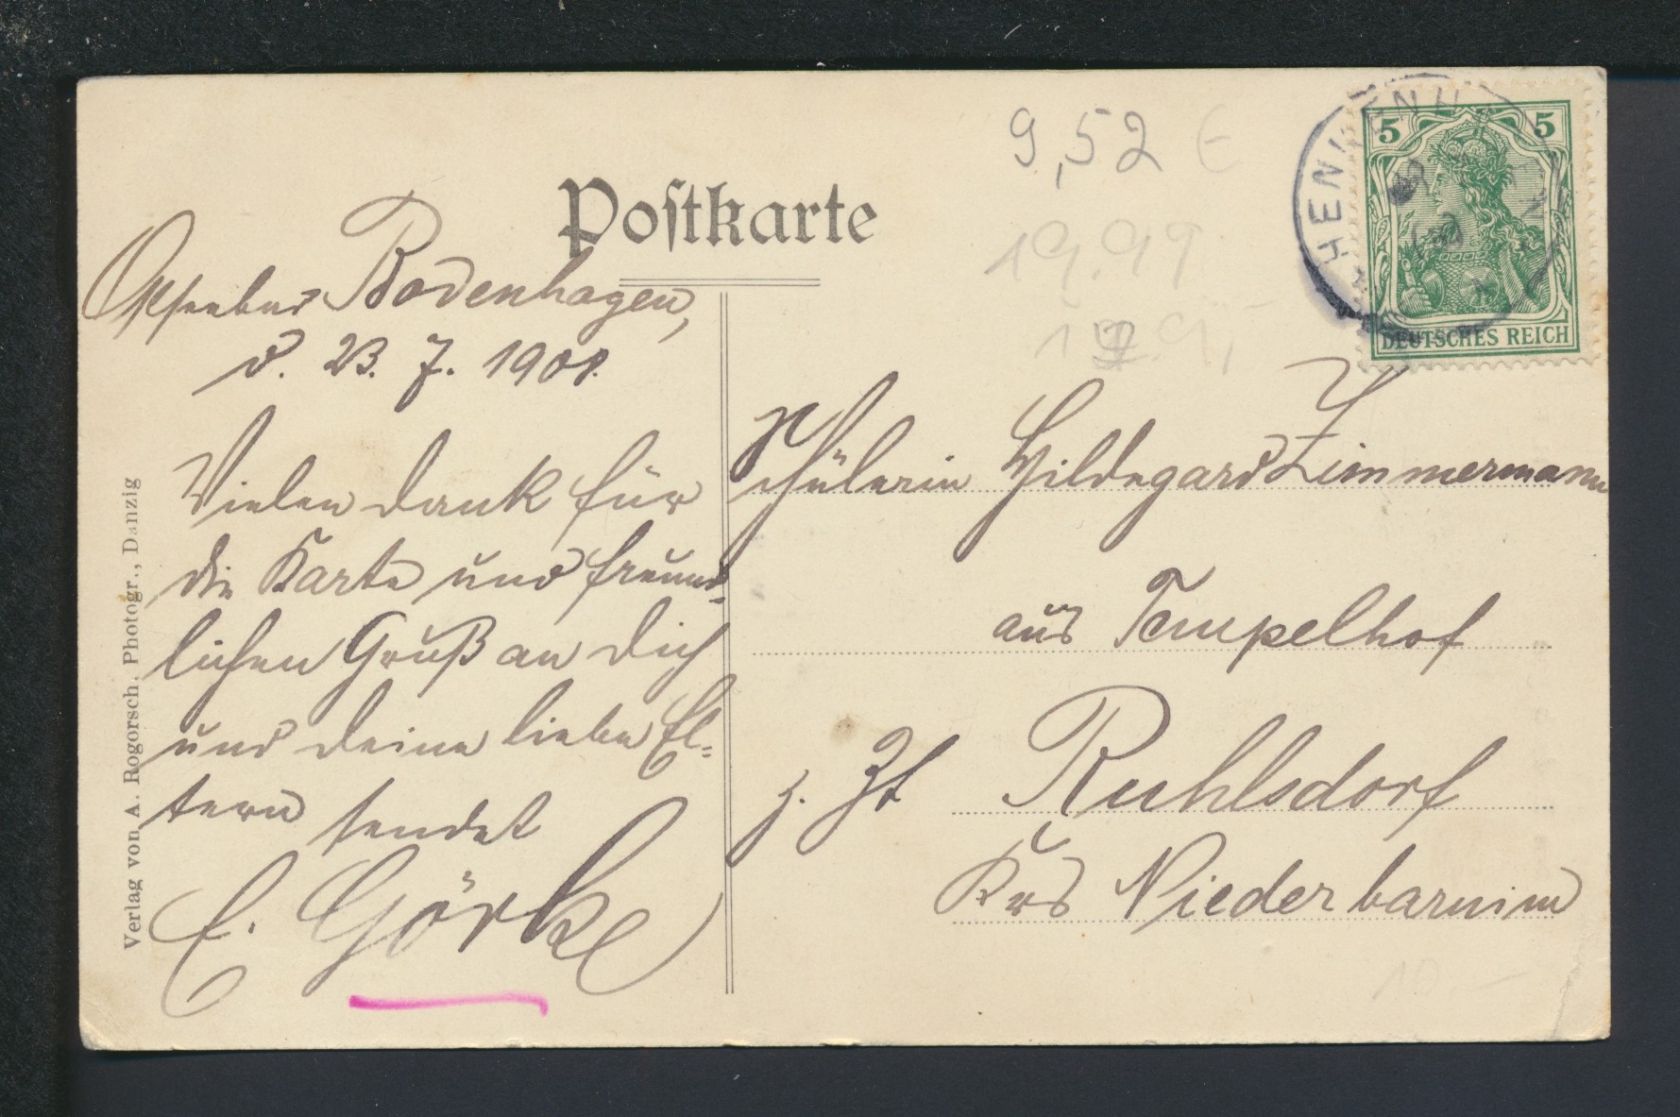 Postkarte
9,52 €
19.99
Ostseebad Bodenhagen,
d. 23. 7. 1908.
Vielen Dank für
die Karte und freund-
lichen Gruß an Dich
und Deine liebe El=
tern sendet
E. Görke
Schülerin Hildegard Zimmermann
aus Tempelhof
z. Zt Ruhlsdorf
Krs Niederbarnim
5 5
DEUTSCHES REICH
Verlag von A. Rogorsch, Photogr., Danzig
10.-